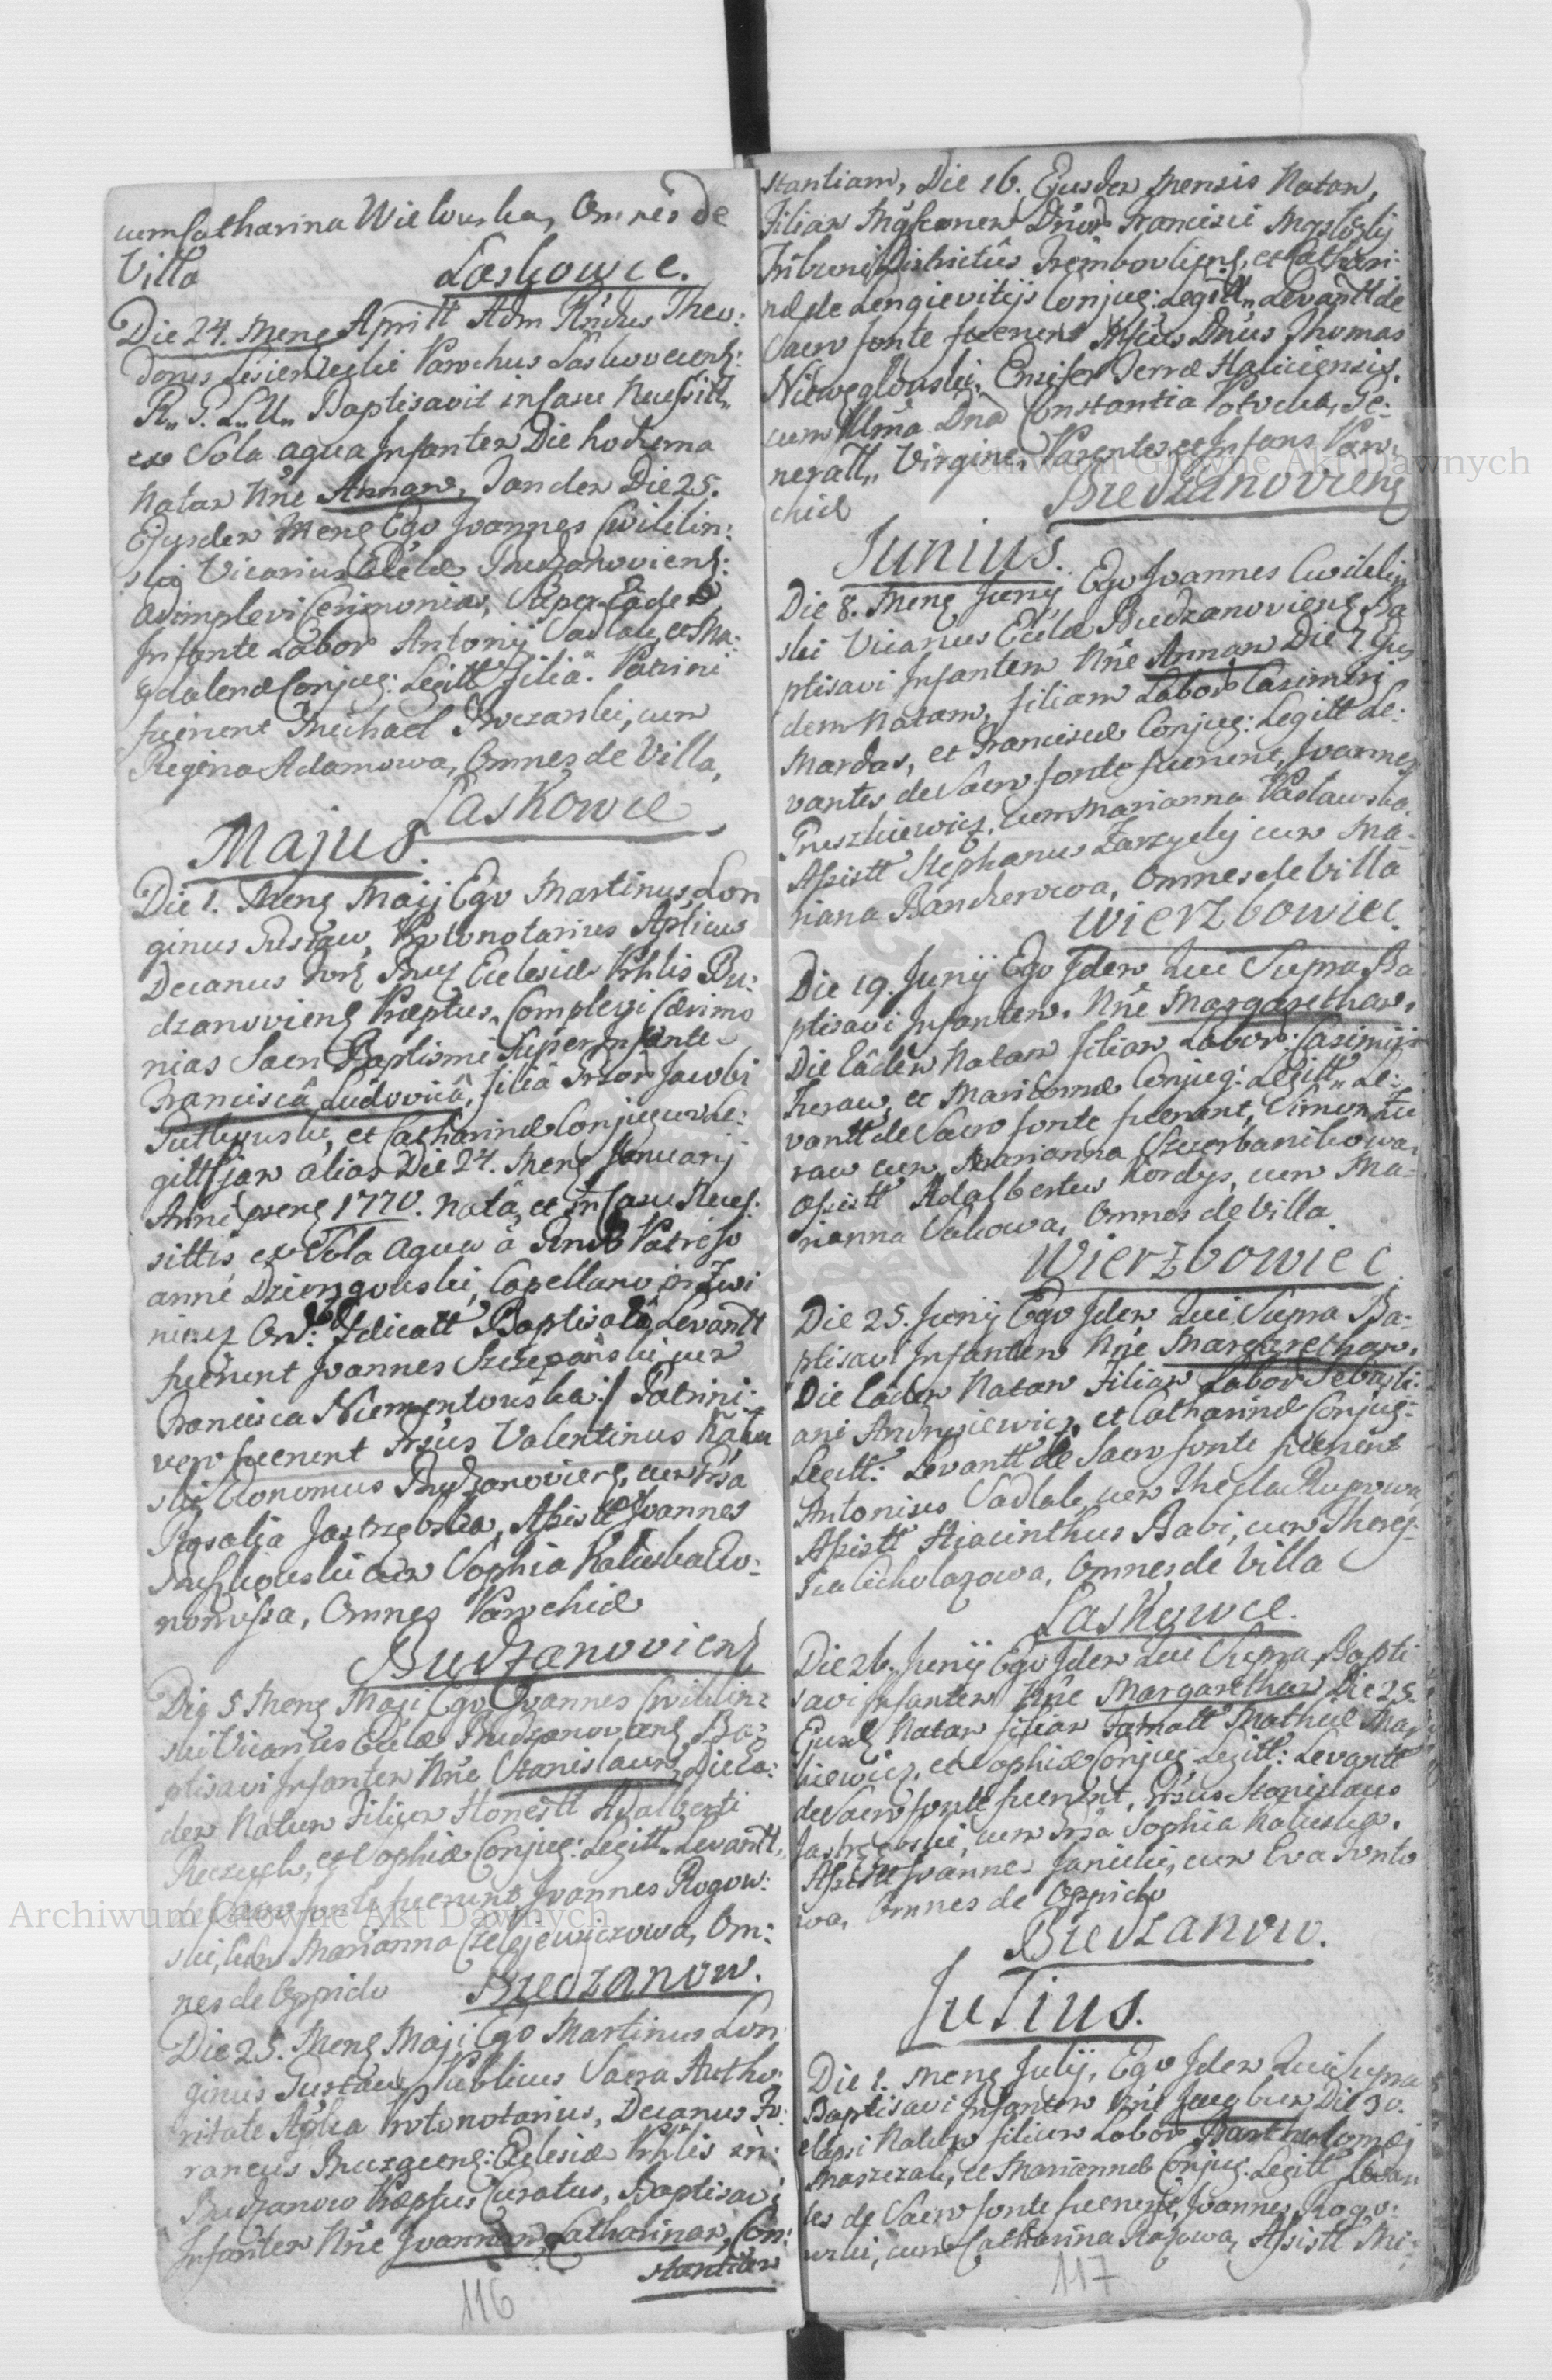 cum Catharina Wielowska, Omnes de
Villa Laskowce.
Die 24. Mens Aprill Adm Rndus Theo:
dorus Parochus Laskovecens:
R. G. L. U. Baptisavit in casu Necessitt
ex Sola aqua Infantem Die hodierna
Natam Nne Annam, Tandem Die 25.
Ejusdem Mens Ego Joannes Cwiklin:
ski Vicarius Eccle Budzanoviens:
Adimplevi Cerimonias, Super Eadem
Infante Labor Antonij Sadlak, et Ma:
gdalenæ Conjug: Legitt Filiâ. Patrini
fuerunt Michael Buczarski, cum
Regina Adamowa, Omnes de Villa,
Laskowce
Majus.
Die 1. Mens Maij Ego Martinus Lon
ginus Gustaw, Protonotarius Aplicus
Decanus Ecclesiæ Prhlis Bu:
dzanoviens Præptus, Complevi Cærimo
nias Sacri Baptismi Super Infante
Franciscâ Ludovicâ, filiâ Grsor Jacobi
Gutkowski, et Catharinæ Conjugum Le:
gitt jam alias Die 24. Mens Januarij
Anni præns 1770. natâ, et in Casu Neces:
sittis, ex Sola Aqua â Rndo Patre
Dziengowski, Capellano in Zwi
niacz Baptisatâ Levantt
fuerunt Joannes Szczepanski cum
Francisca Niementowska:/ Patrini
vero fuerunt Grsus Valentinus Kalu
ski Œconomus Budzanoviens, cum Grsa
Rosalia Jastrzębska, Assistt Joannes
cum Sophia Kaluska Œco:
nomissa, Omnes Parochiæ
Budzanoviens
Die 5 Mens Maji Ego Joannes Cwiklin:
ski Vicarius Eccle Budzanoviens Ba:
ptisavi Infantem Nne Stanislaum, Die Ea:
dem Natum Filium Honestt Adalberti
et Sophiæ Conjug: Legitt. Levantt,
de Sacro fonte fuerunt Joannes Rogow:
ski, cum Marianna Czelejewiczowa, Om:
nes de Oppido Budzanow.
Die 25. Mens Maji Ego Martinus Lon
ginus Gustaw Publicus Sacra Autho:
ritate Aplica Protonotarius, Decanus Fo:
raneus Ecclesiæ Prhlis in:
Budzanow Præptus Curatus, Baptisavi
Infantem Nne Joannam, Catharinam, Con:
stantiam
116
stantiam, Die 16. Ejusdem Mensis Natam,
Filiam Mgfcorum Dnor Francisci
Tribuni Districtûs Trembovliens, et Cathari:
næ de Lengieviczijs Conjug: Legitt, Levantt de
Sacro fonte fuerunt Mfcus Dnus Thomas
Niewęglowski, Ensifer Terræ Haliciensis,
cum Illma Dna Constantia Potocka, Ge:
neratt, Virgine, Parentes et Infans Paro:
chiæ Budzanoviens
Junius.
Die 8. Mens Junij Ego Joannes Cwiklin
ski Vicarius Eccle Budzanoviens Ba
ptisavi Infantem Nne Annam Die 7. Ejus
dem Natam, filiam Labor Casimiri
Mardas, et Franciscæ Conjug: Legitt Le:
vantes de Sacro fonte fuerunt, Joannes
Pruszkiewicz, cum Marianna Paslawska.
Assistt Stephanus Zarzycky cum Ma:
riana Bancherowa, Omnes de Villa
Wierzbowiec.
Die 19. Junij Ego Idem Qui Supra Ba
ptisavi Infantem, Nne Margaretham,
Die Eâdem Natam filiam Labor: Casimiri
Furaw, et Mariannæ Conjug: Legitt, Le:
vantt de Sacro fonte fuerunt, Simon Fu
raw cum Marianna Szczerbanikowa,
Assistt Adalbertus Kordys, cum Ma:
rianna Sakowa, Omnes de Villa
Wierzbowiec.
Die 25. Junij Ego Idem Qui Supra Ba:
ptisavi Infantem Nne Margaretham.
Die Eâdem Natam Filiam Labor Sebasti:
ani Andrusiewicz, et Catharinæ Conjug:
Legitt: Levantt de Sacro fonte fuerunt
Antonius Sadlak, cum Thecla
Assistt Hiacinthus Babi, cum There:
sia Omnes de Villa
Laskowce.
Die 26. Junij Ego Idem Qui Supra, Bapti
savi Infantem Nne Margaretham Die 25
Ejusd Natam filiam Famatt Mathiæ Mac
kiewicz, et Sophiæ Conjug: Legitt: Levantt
de Sacro fonte fuerunt, Grsus Stanislaus
Jastrzębski, cum Grsa Sophia Kaluska.
Assistt Joannes Janicki, cum Eva
wa, Omnes de Oppido
Budzanow.
Julius.
Die 1. Mens Julij, Ego Idem Qui Supra
Baptisavi Infantem Nne Jacobum Die 30.
elapsi Natum filium Labor Bartholomæi
Maszczak, et Mariannæ Conjug: Legitt Levan
tes de Sacro fonte fuerunt, Joannes Rogo:
wski, cum Catharina Assistt Mi:
117
Archiwum Główne Akt Dawnych
Archiwum Główne Akt Dawnych